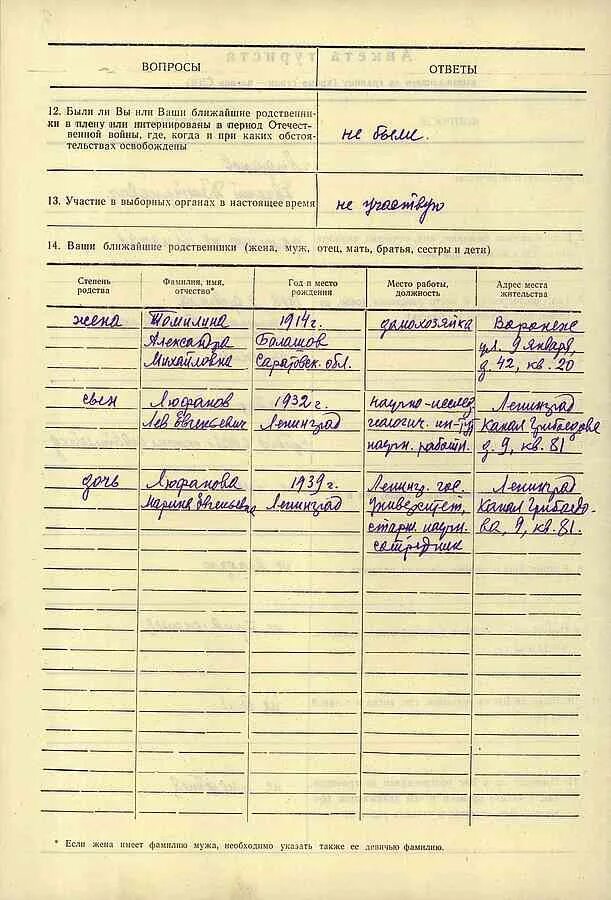 ВОПРОСЫ ОТВЕТЫ
12. Были ли Вы или Ваши ближайшие родственни-
ки в плену или интернированы в период Отечест-
венной войны, где, когда и при каких обстоя-
тельствах освобождены
не были.
13. Участие в выборных органах в настоящее время
не участвую
14. Ваши ближайшие родственники (жена, муж, отец, мать, братья, сестры и дети)
Степень родства
Фамилия, имя, отчество*
Год и место рождения
Место работы, должность
Адрес места жительства
жена Томилина 1914 г. домохозяйка Воронеж
Александра Балашов ул. 9 Января,
Михайловна Саратовск. обл. д. 42, кв. 20
сын Люфанов 1932 г. научно-исслед. Ленинград
Лев Евгеньевич Ленинград геологич. ин-тут Канал Грибоедова
научн. работн. д. 9, кв. 81
дочь Люфанова 1939 г. Ленингр. гос. Ленинград
Марина Евгеньевна Ленинград университет, Канал Грибоедо-
старш. научн. ва, 9, кв. 81.
сотрудник
* Если жена имеет фамилию мужа, необходимо указать также ее девичью фамилию.